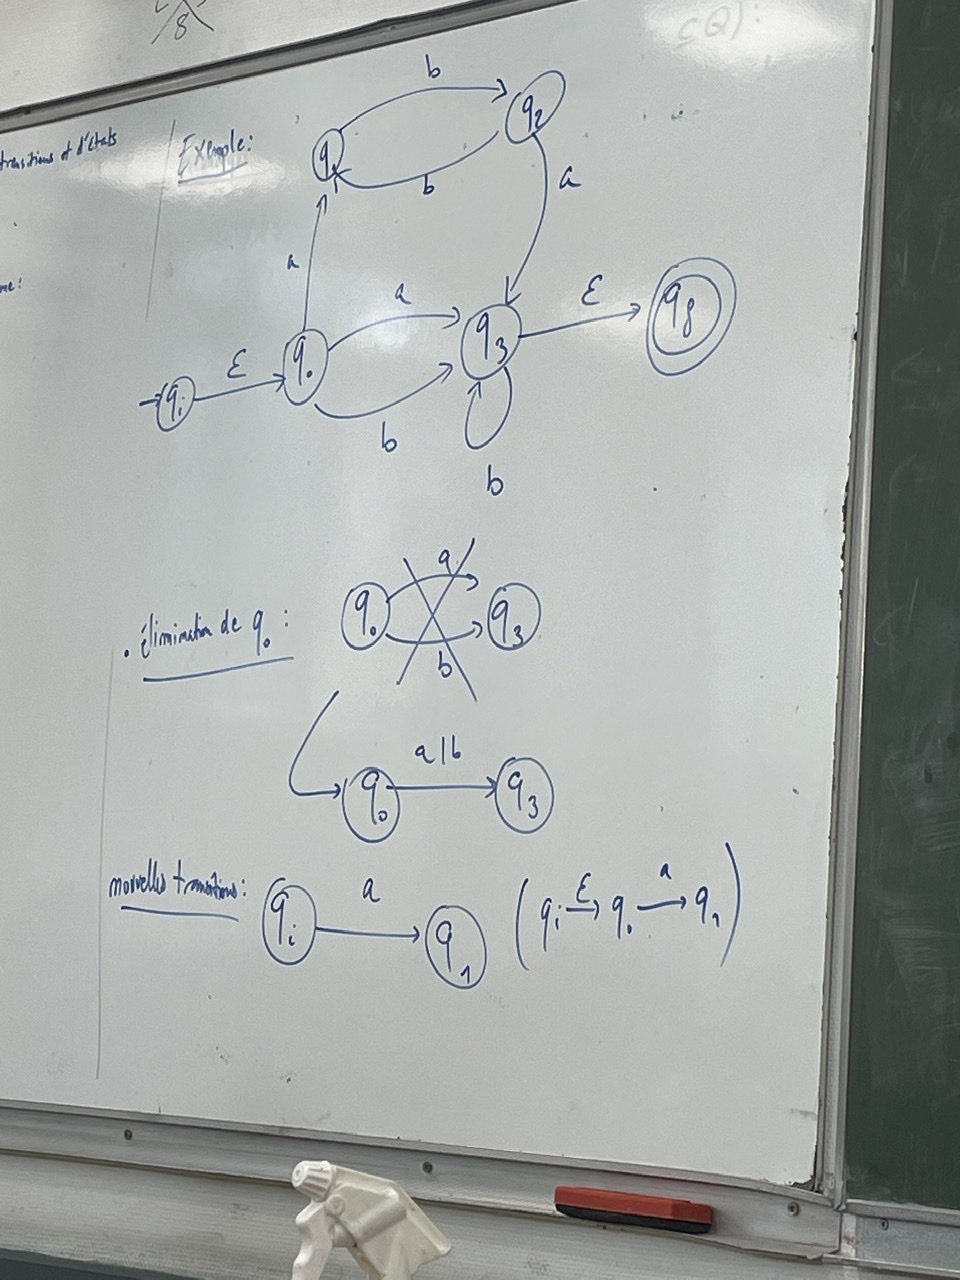 8
transitions et d'états
Exemple:
b
q1
q2
b
a
a
a
ε
ε
qi
q0
q3
qf
b
b
. élimination de q0 :
a
q0
q3
b
a|b
q0
q3
nouvelles transitions:
a
qi
q1
(qi ε→ q0 a→ q1)